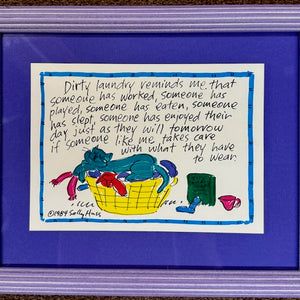 Dirty laundry reminds me that
someone has worked, someone has
played, someone has eaten, someone
has slept, someone has enjoyed their
day just as they will tomorrow
if someone like me takes care
with what they have
to wear.
©1984 Sally Huss